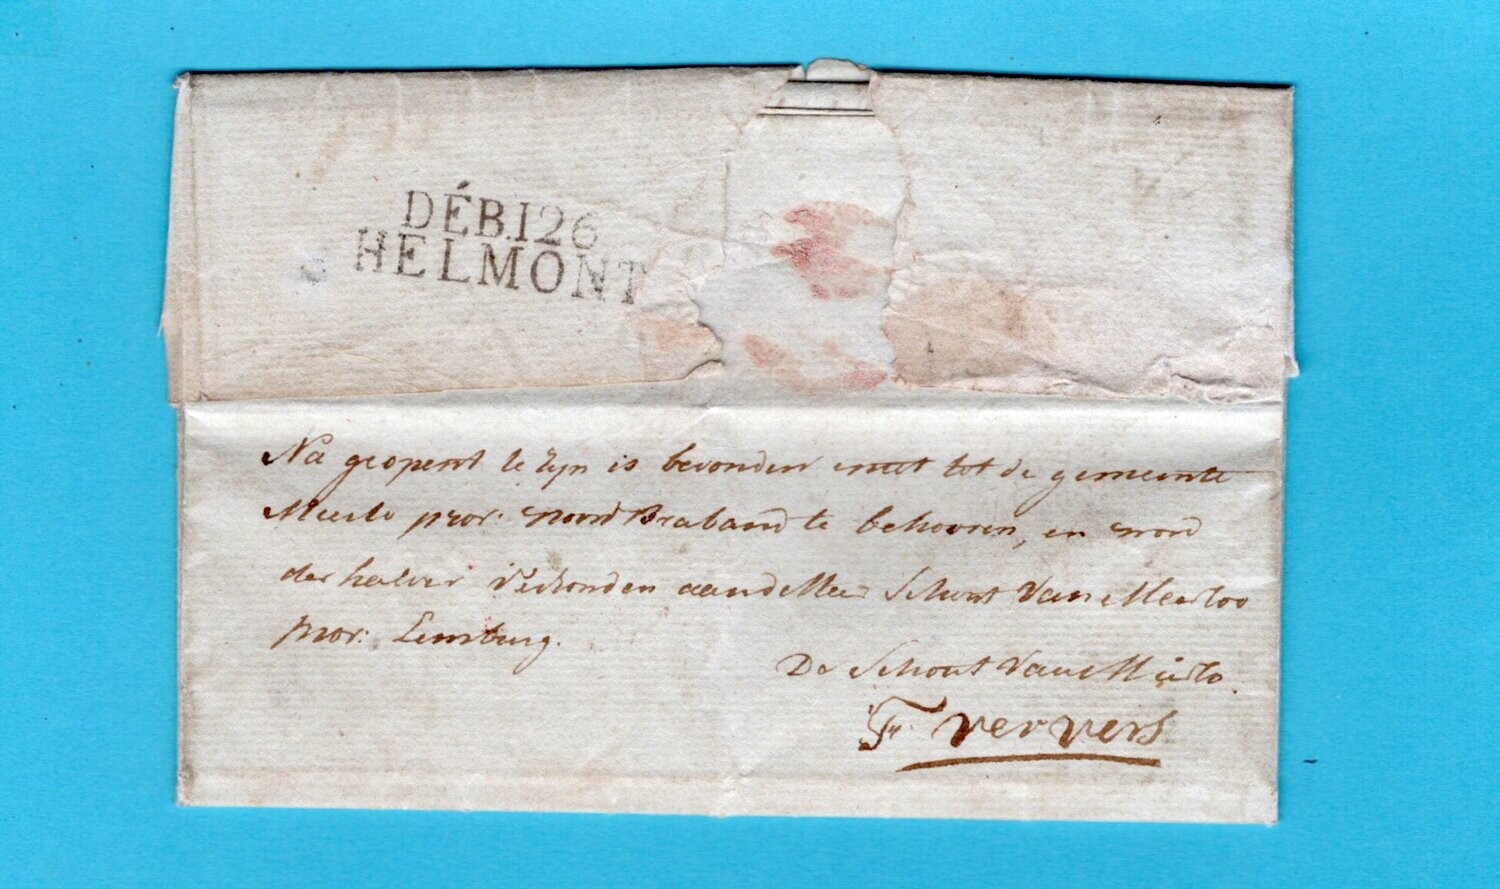 DÉB.126
HELMONT
Na geopent te zyn is bevonden niet tot de gemeente
Mierlo prov: Noord Braband te behooren, en word
derhalver verzonden aan de Heer Schout van Meerloo
prov: Limburg.
De Schout van Mierlo.
F. ververs